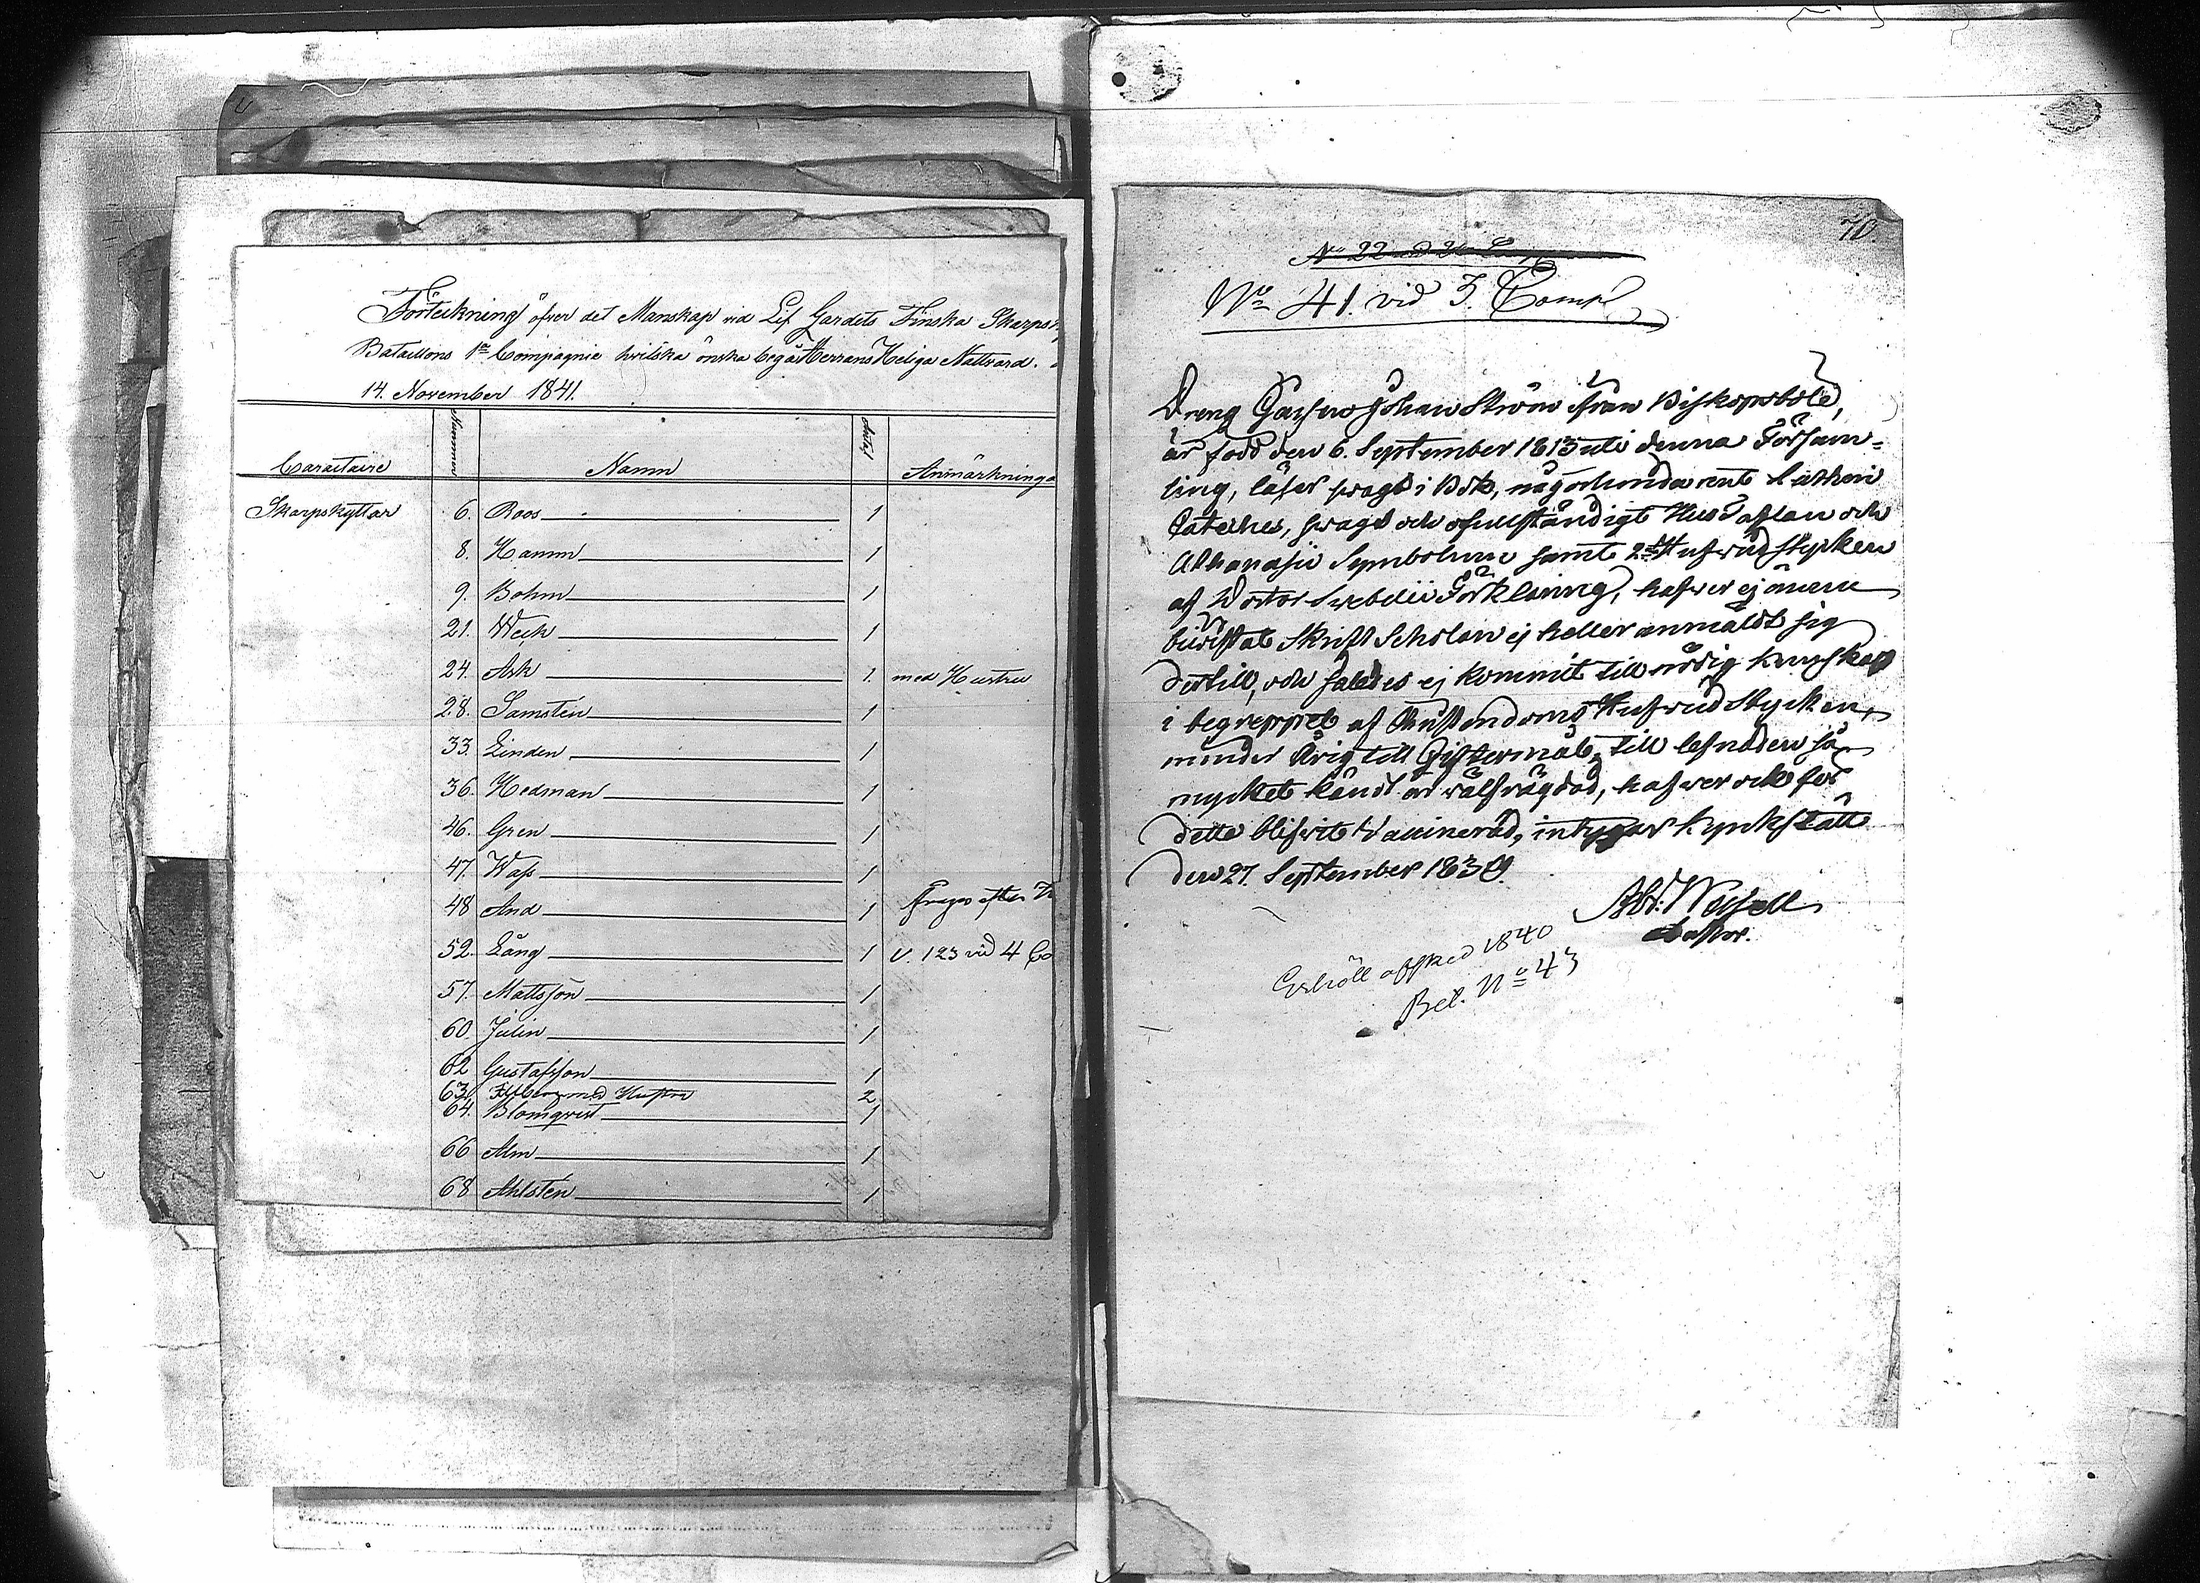 Förteckning öfver det Manskap vid Lif Gardets Finska Skarpsk
Bataillons 1ª Compagnie hvilska önska begå Herrans Heliga Nattvard.
14. November 1841.
Caractaire Nummer Namn Antal Anmärkninga
Skarpskyttar 6. Roos 1
8. Hamm 1
9. Bohm 1
21. Weck 1
24. Ask 1 med Hustru
28. Samstén 1
33. Linden 1
36. Hedman 1
46. Gren 1
47. Wass 1
48 And 1 frages efter
52. Lång 1 v. 123 vid 4 Co
57. Mattsson 1
60. Julin 1
62 Gustafsson 1
63. med Hustru 2
64. Blomqvist 1
66 Alm 1
68 Ahlstén 1
70.
No 22 vid 2
No 41. vid 3. Comp.
Dreng Johan Ström ifrån Biskopsböle,
är född den 6. September 1813 uti denna Försam=
ling, läser svagt i Bok, någorlunda rent Lutheri
Cateches, svagt och ofullständigt Hus Taflan och
Athanasii Symbolum samt 2ne Hufvudstycken
af Doctor Swebelii Förklaring, hafver ej ännu
bivistat Skrift Scholan ej heller anmäldt sig
dertill, och således ej kommit till nödig kunskap
i begreppet af Christendoms Hufvud Stycken,
minder årig till Giftermål, till lefnaden så
mycket kändt är välfrägdad, hafver ock för
detta blifvit Vaccinerad, intygar Kyrkslätt
den 27. September 1830.
Pastor.
Erhöll afsked 1840
Bel. No 43